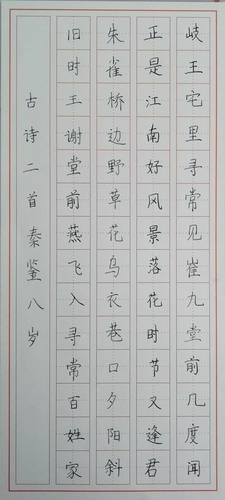 岐王宅里寻常见崔九堂前几度闻
正是江南好风景落花时节又逢君
朱雀桥边野草花乌衣巷口夕阳斜
旧时王谢堂前燕飞入寻常百姓家
古诗二首秦鉴八岁